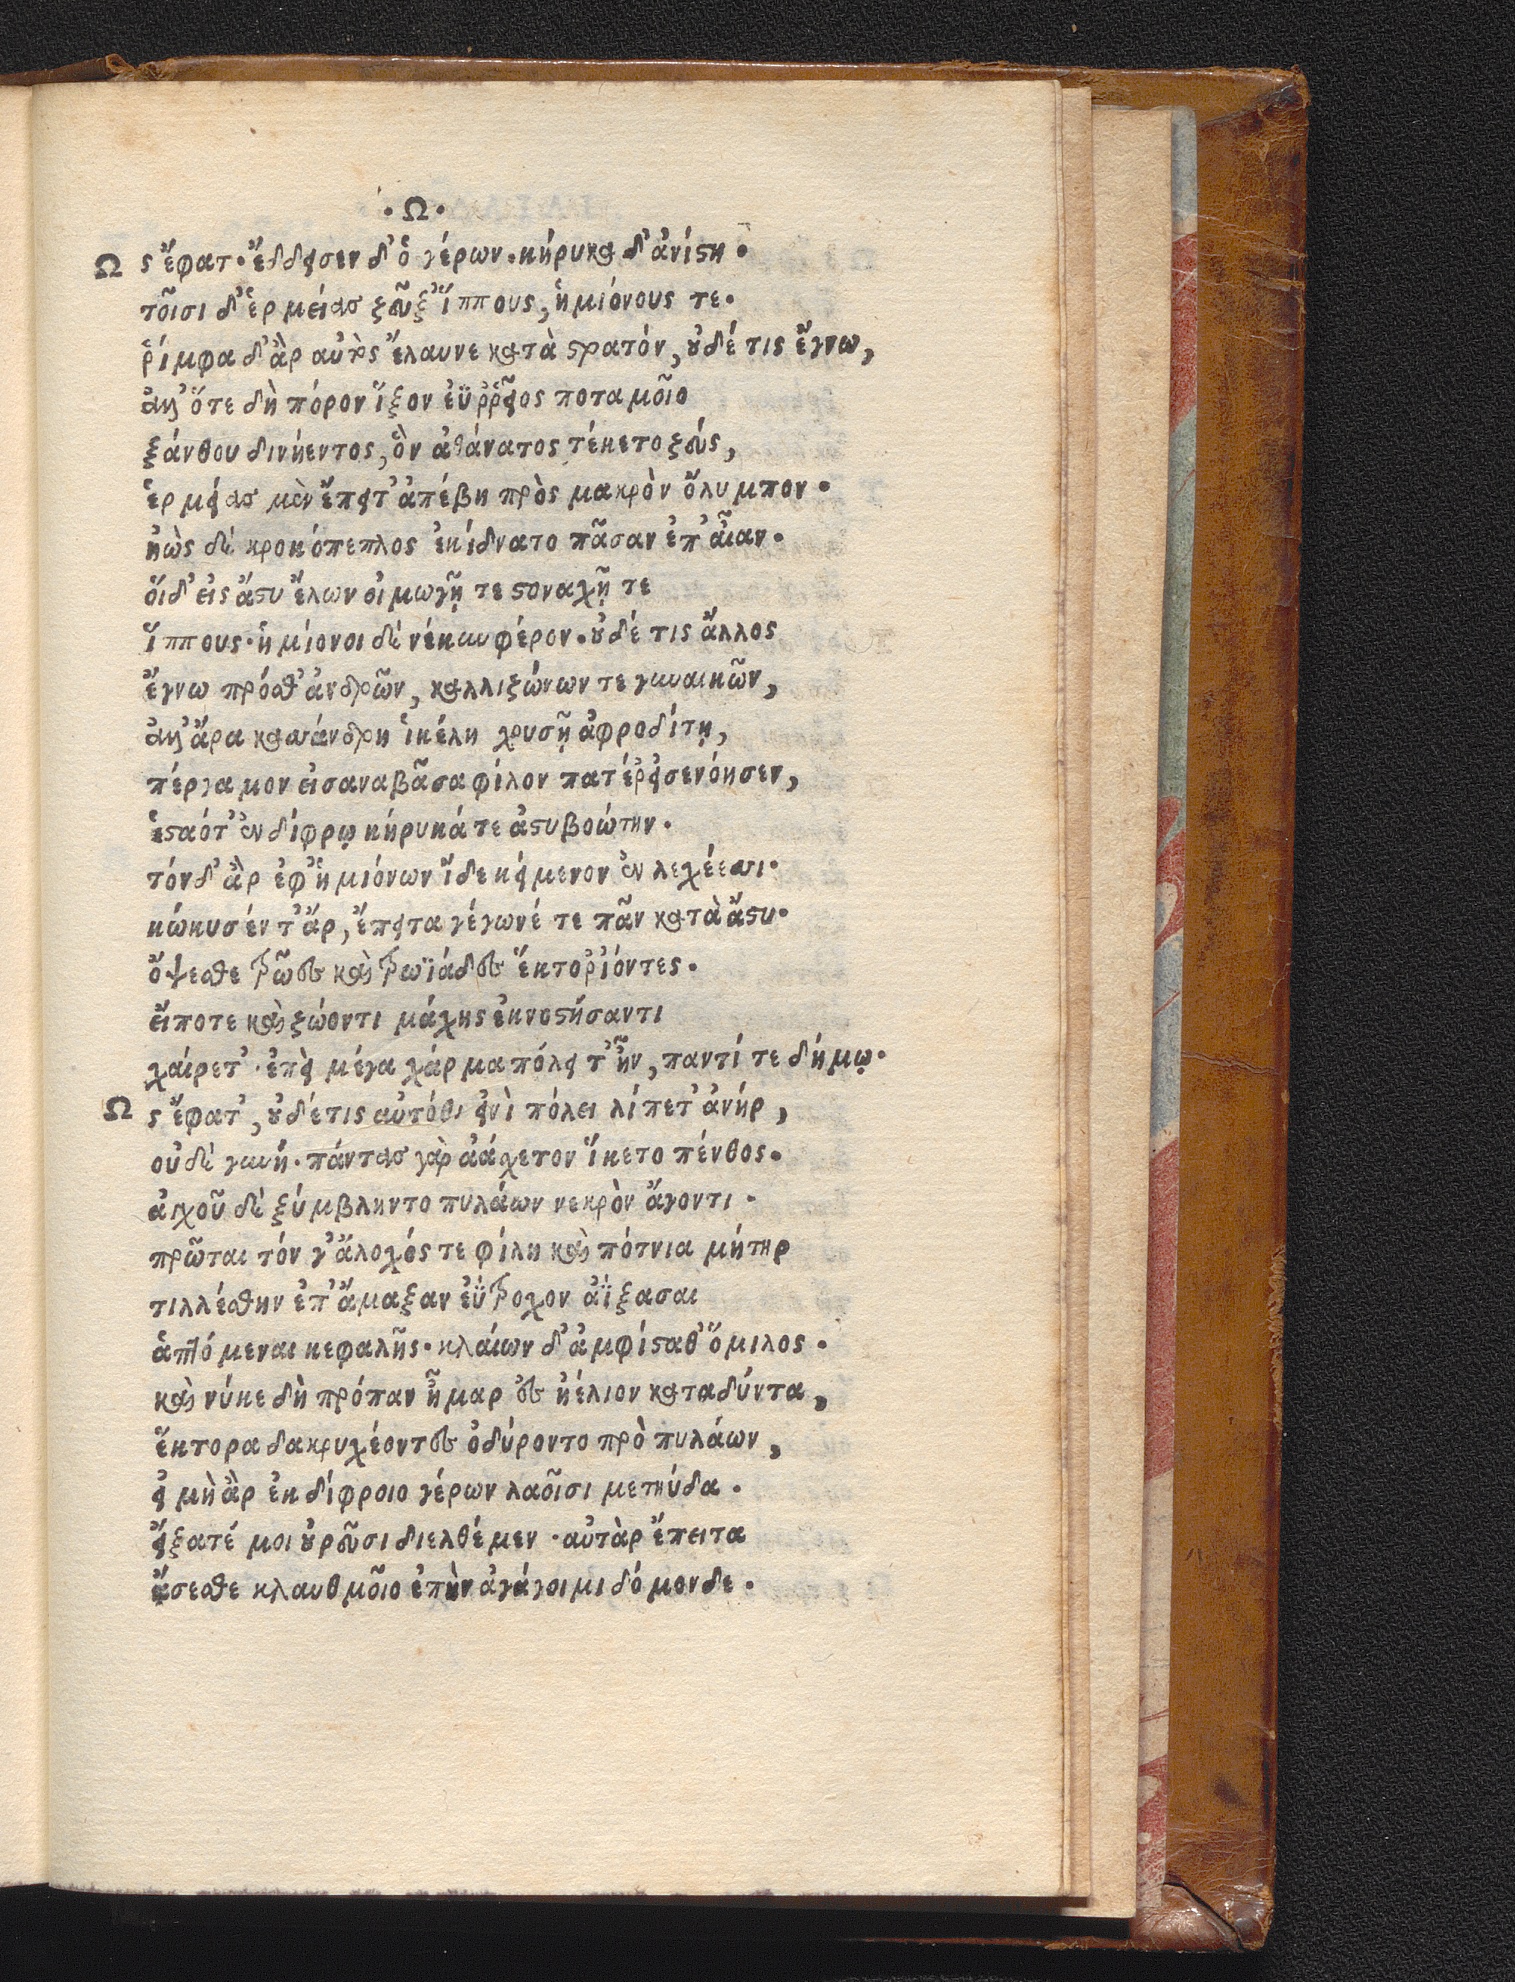 ·Ω·
Ως ἔφατ· ἔδδεισεν δ' ὁ γέρων· κήρυκα δ' ἀνίστη·
τοῖσι δ' ἑρμείας ζεῦξ' ἵππους, ἡμιόνους τε·
ῥίμφα δ' ἂρ αὐτὸς ἔλαυνε κατὰ στρατόν, οὐδέ τις ἔγνω,
ἀλλ' ὅτε δὴ πόρον ἷξον ἐϋῤῥεῖος ποταμοῖο
ξάνθου δινήεντος, ὃν ἀθάνατος τέκετο ζεύς,
ἑρμείας μὲν ἔπειτ' ἀπέβη πρὸς μακρὸν ὄλυμπον·
ἠὼς δὲ κροκόπεπλος ἐκίδνατο πᾶσαν ἐπ' αἶαν·
οἵδ' εἰς ἄστυ ἔλων οἰμωγῇ τε στοναχῇ τε
ἵππους· ἡμίονοι δὲ νέκυν φέρον· οὐδέ τις ἄλλος
ἔγνω πρόσθ' ἀνδρῶν, καλλιζώνων τε γυναικῶν,
ἀλλ' ἄρα κασσάνδρη ἰκέλη χρυσῇ ἀφροδίτῃ,
πέργαμον εἰσαναβᾶσα φίλον πατέρ' εἰσενόησεν,
ἑσταότ' ἐν δίφρῳ κήρυκά τε ἀστυβοώτην·
τόν δ' ἂρ ἐφ' ἡμιόνων ἴδε κείμενον ἐν λεχέεσσι·
κώκυσέν τ' ἄρ, ἔπειτα γέγωνέ τε πᾶν κατὰ ἄστυ·
ὄψεσθε τρῶες καὶ τρωϊάδες ἕκτορ' ἰόντες·
εἴποτε καὶ ζώοντι μάχης ἐκνοστήσαντι
χαίρετ'· ἐπεὶ μέγα χάρμα πόλει τ' ἦν, παντί τε δήμῳ·
Ως ἔφατ', οὐδέ τις αὐτόθι ἐνὶ πόλει λίπετ' ἀνήρ,
οὐδὲ γυνή· πάντας γὰρ ἀάσχετον ἵκετο πένθος·
ἀγχοῦ δὲ ξύμβληντο πυλάων νεκρὸν ἄγοντι·
πρῶται τόν γ' ἄλοχός τε φίλη καὶ πότνια μήτηρ
τιλλέσθην ἐπ' ἄμαξαν ἐΰτροχον ἀΐξασαι
ἁπτόμεναι κεφαλῆς· κλαίων δ' ἀμφίσταθ' ὅμιλος·
καὶ νύκε δὴ πρόπαν ἦμαρ ἐς ἠέλιον καταδύντα,
ἕκτορα δακρυχέοντες ὀδύροντο πρὸ πυλάων,
εἰ μὴ ἂρ ἐκ δίφροιο γέρων λαοῖσι μετηύδα·
εἴξατέ μοι οὐρεῦσι διελθέμεν· αὐτὰρ ἔπειτα
ἄσεσθε κλαυθμοῖο ἐπὴν ἀγάγοιμι δόμονδε·